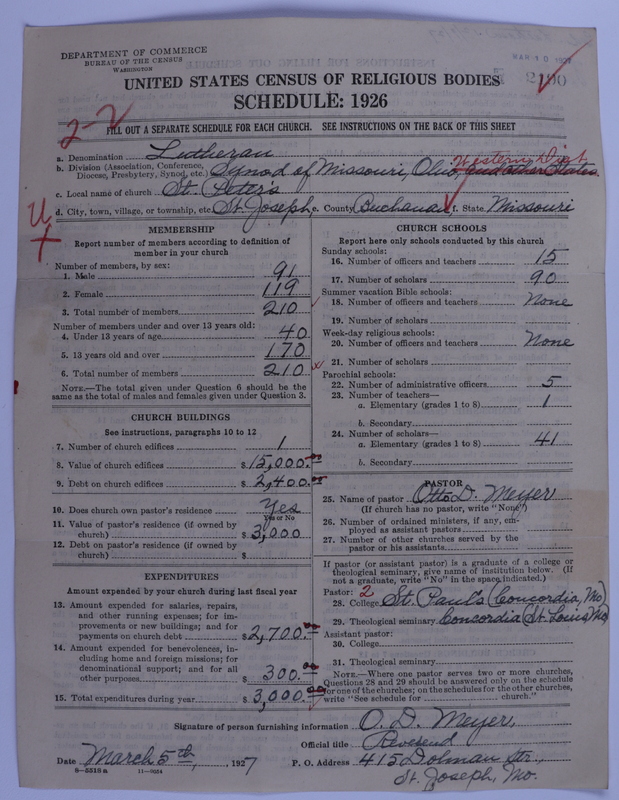 DEPARTMENT OF COMMERCE
BUREAU OF THE CENSUS
WASHINGTON
MAR 10 1927
2190
UNITED STATES CENSUS OF RELIGIOUS BODIES
SCHEDULE: 1926
2-2
FILL OUT A SEPARATE SCHEDULE FOR EACH CHURCH. SEE INSTRUCTIONS ON THE BACK OF THIS SHEET
a. Denomination Lutheran
b. Division (Association, Conference, Diocese, Presbytery, Synod, etc.) Synod of Missouri, Ohio, and other States. Western Dist
c. Local name of church St. Peter's
d. City, town, village, or township, etc. St. Joseph e. County Buchanan f. State Missouri
U
MEMBERSHIP
Report number of members according to definition of
member in your church
Number of members, by sex:
1. Male 91
2. Female 119
3. Total number of members 210
Number of members under and over 13 years old:
4. Under 13 years of age 40
5. 13 years old and over 170
6. Total number of members 210
NOTE.—The total given under Question 6 should be the
same as the total of males and females given under Question 3.
CHURCH BUILDINGS
See instructions, paragraphs 10 to 12
7. Number of church edifices 1
8. Value of church edifices $15,000.00
9. Debt on church edifices $2,400.00
10. Does church own pastor's residence Yes
Yes or No
11. Value of pastor's residence (if owned by
church) $3,000
12. Debt on pastor's residence (if owned by
church) $
EXPENDITURES
Amount expended by your church during last fiscal year
13. Amount expended for salaries, repairs,
and other running expenses; for im-
provements or new building; and for
payments on church debt $2,700.00
14. Amount expended for benevolences, in-
cluding home and foreign missions; for
denominational support; and for all
other purposes $300.00
15. Total expenditures during year $3,000.00
CHURCH SCHOOLS
Report here only schools conducted by this church
Sunday schools:
16. Number of officers and teachers 15
17. Number of scholars 90
Summer vacation Bible schools:
18. Number of officers and teachers None
19. Number of scholars
Week-day religious schools:
20. Number of officers and teachers None
21. Number of scholars
Parochial schools:
22. Number of administrative officers 5
23. Number of teachers—
a. Elementary (grades 1 to 8) 1
b. Secondary
24. Number of scholars—
a. Elementary (grades 1 to 8) 41
b. Secondary
PASTOR
25. Name of pastor Otto D. Meyer
(If church has no pastor, write "None")
26. Number of ordained ministers, if any, em-
ployed as assistant pastors
27. Number of other churches served by the
pastor or his assistants
If pastor (or assistant pastor) is a graduate of a college or
theological seminary, give name of institution below. (If
not a graduate, write "No" in the space indicated.)
Pastor: 2
28. College St. Paul's (Concordia, Mo)
29. Theological seminary Concordia (St. Louis Mo)
Assistant pastor:
30. College
31. Theological seminary
NOTE.—Where one pastor serves two or more churches,
Questions 28 and 29 should be answered only on the schedule
for one of the churches; on the schedules for the other churches,
write "See schedule for church."
Signature of person furnishing information O. D. Meyer,
Official title Reverend
Date March 5th, 1927 P. O. Address 415 Dolman Str.,
St. Joseph, Mo.
8-5518a 11-9054